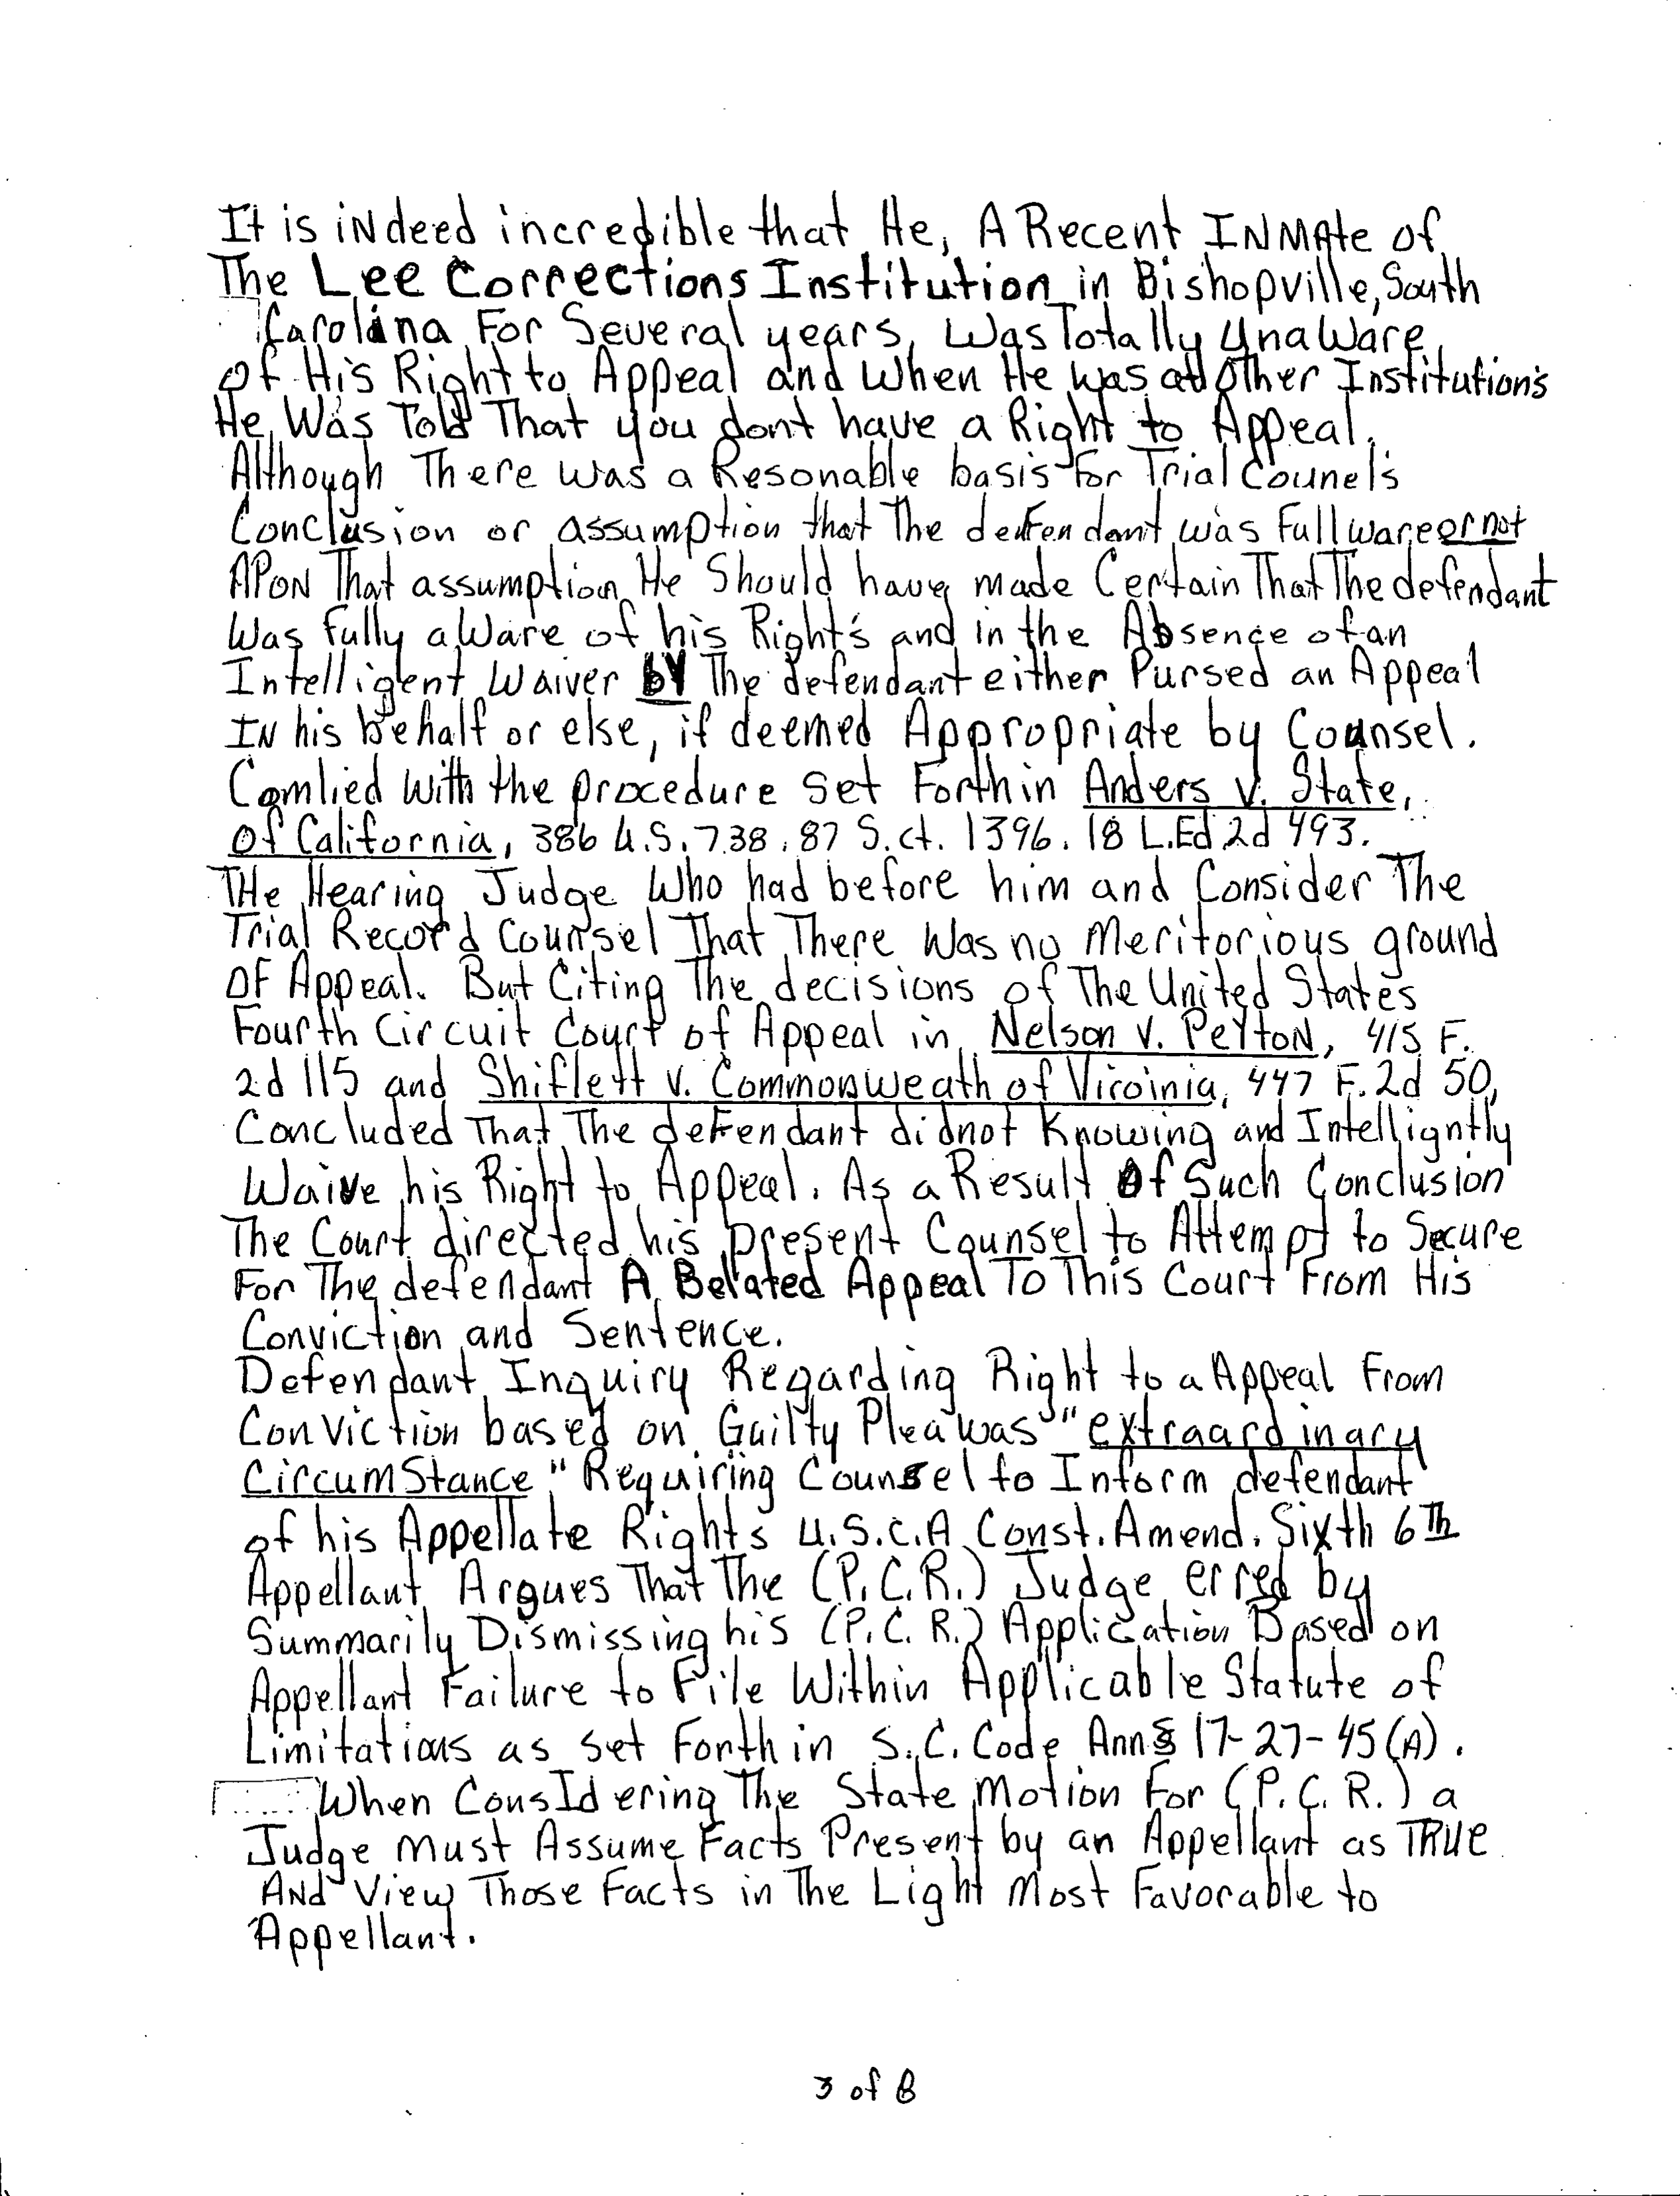 It is iNdeed incredible that He, A Recent INMAte of
The Lee Corrections Institution in Bishopville, South
Carolina For Several years, Was Totally UnaWare
of His Right to Appeal and When He was at Other Institution's
He Was Told That you dont have a Right to Appeal.
Although There was a Resonable basis For Trial Counel's
Conclusion or assumption that The defendant was Full ware or not
APON That assumption He Should have made Certain That The defendant
Was Fully aWare of his Right's and in the Absence of an
Intelligent Waiver by The defendant either Pursed an Appeal
IN his behalf or else, if deemed Appropriate by Counsel.
Comlied With the procedure Set Forth in Anders v. State,
Of California, 386 U.S. 738. 87 S.ct. 1396. 18 L.Ed.2d 493.
THe Hearing Judge Who had before him and Consider The
Trial Record Counsel That There Was no Meritorious ground
OF Appeal. But Citing The decisions of The United States
Fourth Circuit Court of Appeal in Nelson v. PeYtoN, 415 F.
2d 115 and Shiflett v. Commonweath of Viroinia, 447 F.2d 50,
Concluded That The defendant didnot Knowing and Intelligntly
Waive his Right to Appeal. As a Result Of Such Conclusion
The Court directed his present Counsel to Attempt to Secure
For The defendant A Belated Appeal To This Court From His
Conviction and Sentence.
Defendant Inquiry Regarding Right to a Appeal From
Conviction based on Guilty Plea was "extraardinary
CircumStance" Requiring Counsel to Inform defendant
of his Appellate Rights U.S.C.A Const. Amend. Sixth 6Th
Appellant Argues That The (P.C.R.) Judge erred by
Summarily Dismissing his (P.C.R.) Application Based on
Appellant Failure to File Within Applicable Statute of
Limitations as set Forth in S.C. Code Ann § 17-27-45(A).
When ConsIdering The State Motion For (P.C.R.) a
Judge Must Assume Facts Present by an Appellant as TRUE
ANd View Those Facts in The Light Most Favorable to
Appellant.
3 of 8